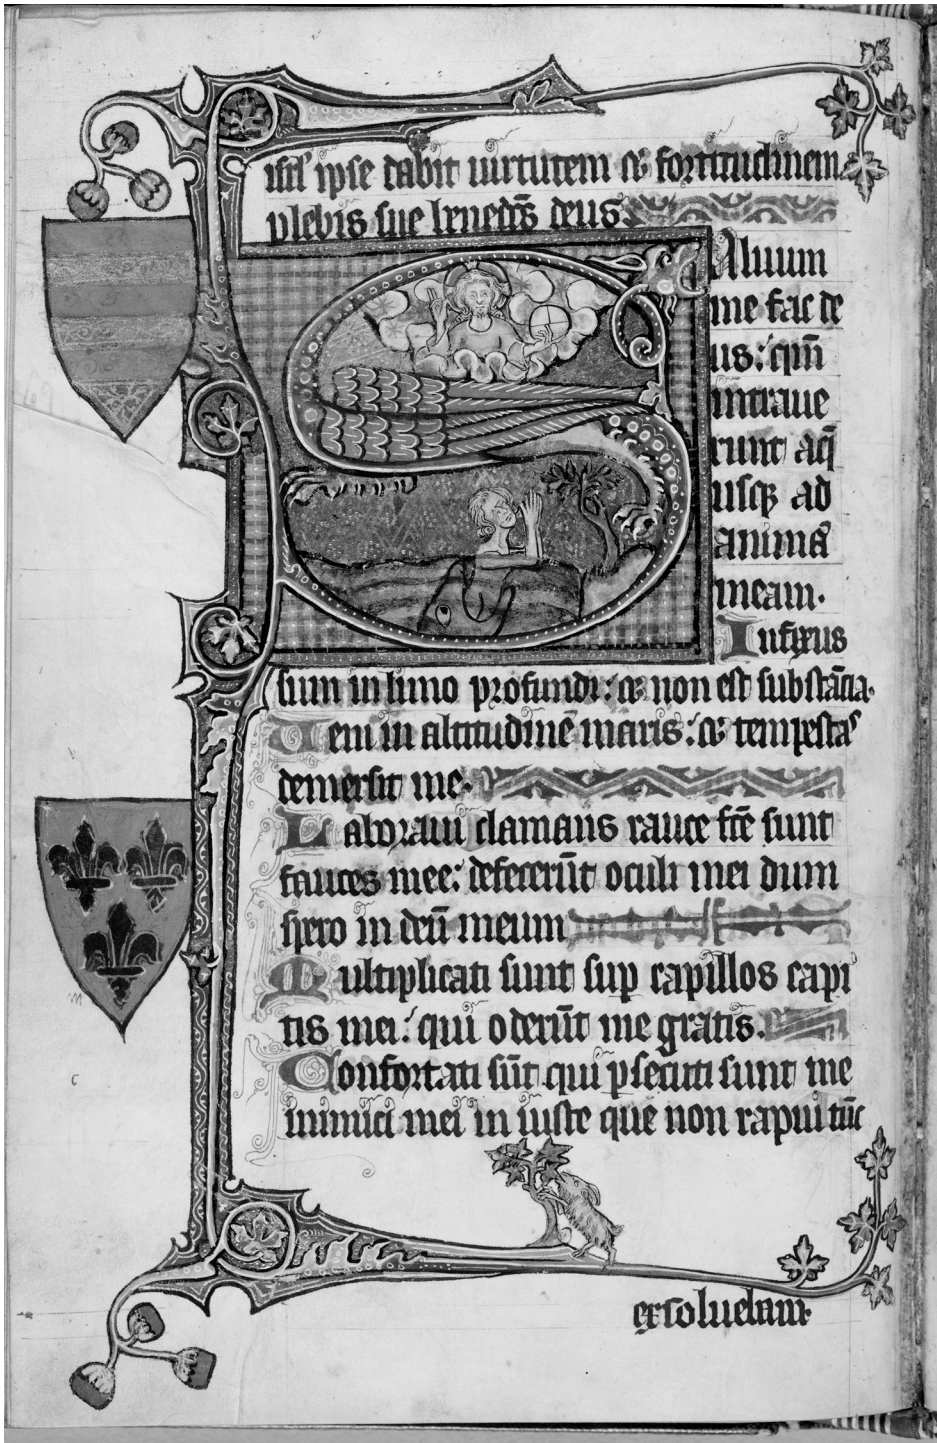 isrl ipse dabit uirtutem & fortitudinem
plebis sue bened̄s deus
Saluum
me fac de
us: qm̄
intraue
runt aq̄
usq; ad
animā
meam.
Infixus
sum in limo profundi: & non est substācia.
Ueni in altitudinē maris: & tempestas
demersit me.
Laboraui clamans rauce fc̄e sunt
fauces mee: defecerūt oculi mei dum
spero in deū meum
Multiplicati sunt sup capillos capi
tis mei: qui oderūt me gratis.
Confortati sūt qui psecuti sunt me
inimici mei in iuste que non rapui tūc
exsoluebam.